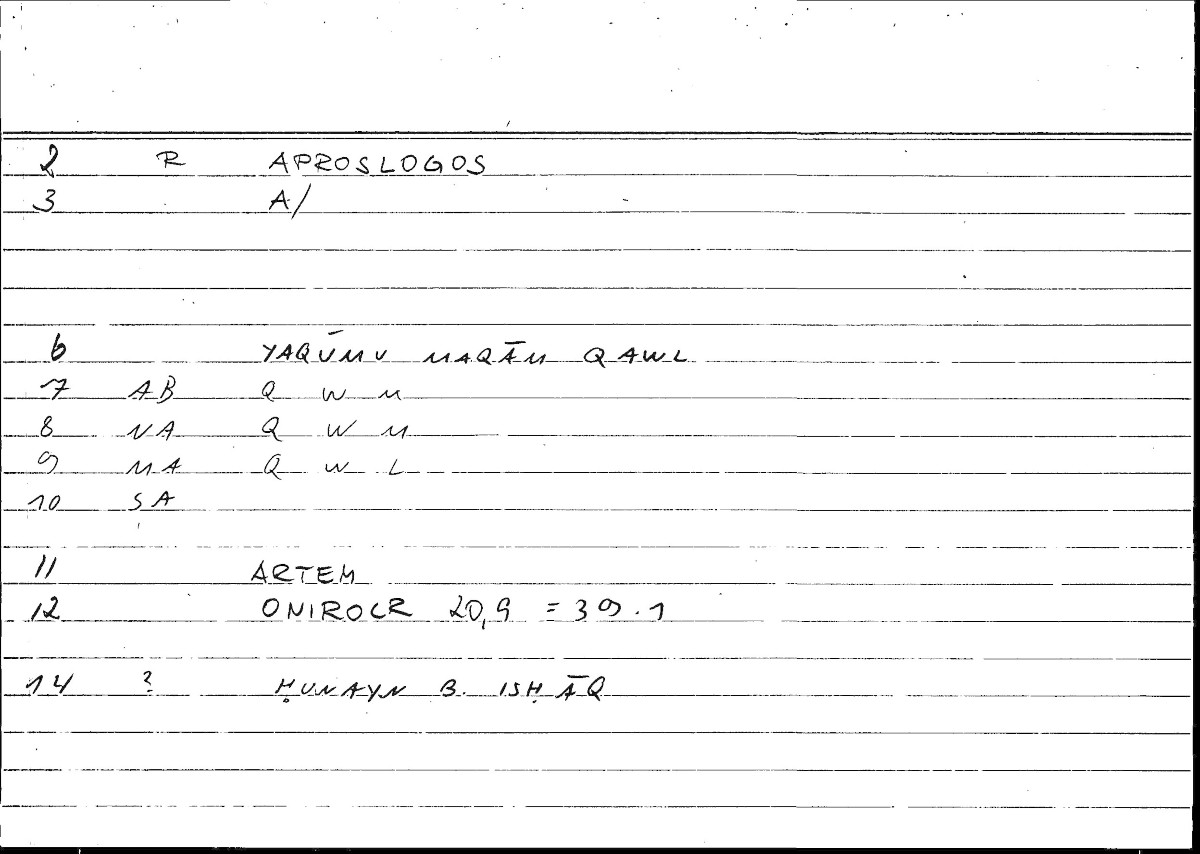 2 R APROSLOGOS
3 A/
6 YAQŪMU MAQĀM QAWL
7 AB Q W M
8 NA Q W M
9 MA Q W L
10 SA
11 ARTEM
12 ONIROCR 20,9 = 39.1
14 ? ḤUNAYN B. ISḤĀQ